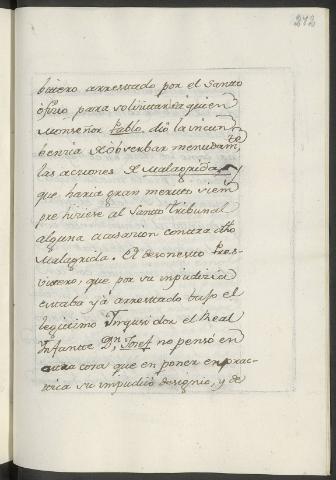 272
bitero arrestado por el Santo
oficio para solicitar a quien
Monseñor Pablo dió la incum
bencia de observar menudam.te
las acciones de Malagrida, y
que haria gran merito siem
pre hiciese al Santo Tribunal
alguna acusacion contra dho
Malagrida. El desonesto Pres-
vitero, que por su impudicia
estaba yá arrestado bajo el
legitimo Inquisidor el Real
Infante Dn. Josef no pensó en
otra cosa que en poner en prac-
tica su impudico designio, y de